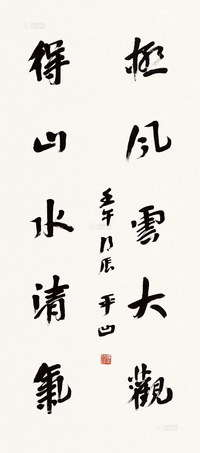 極風雲大觀
得山水清氣
壬午 平山